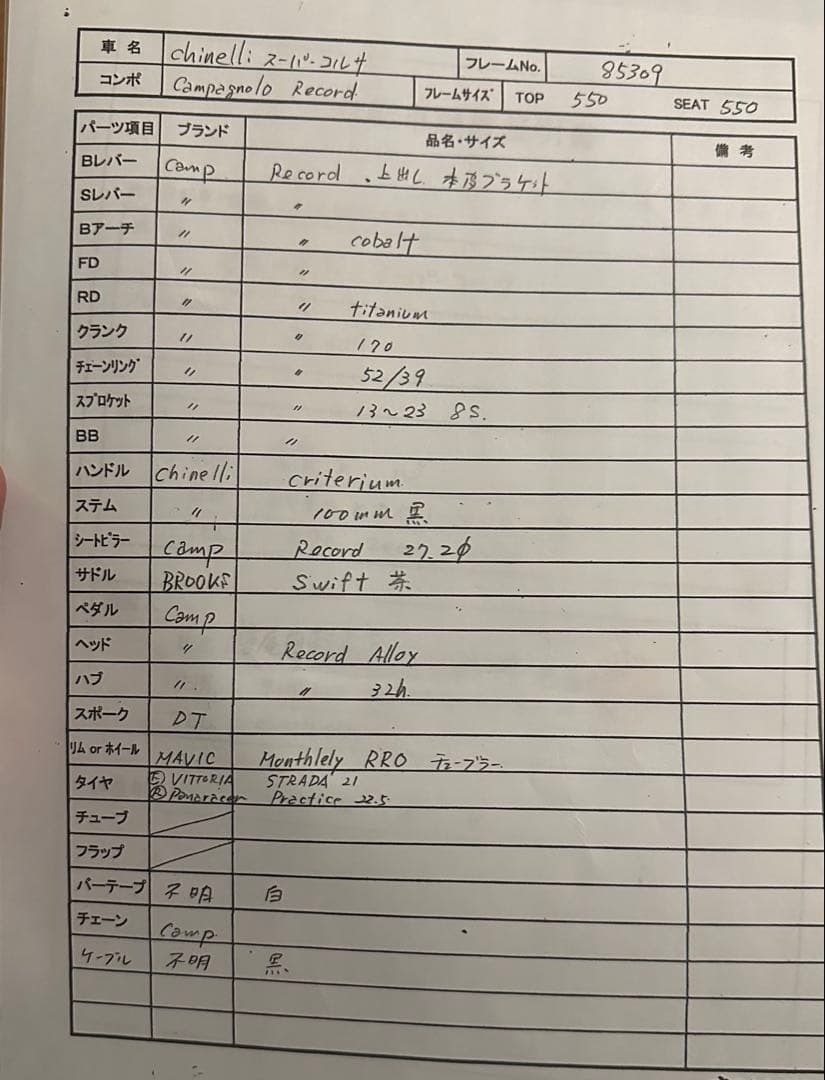 車名 chinelli スーパーコルサ フレームNo. 85309
コンポ Campagnolo Record フレームサイズ TOP 550 SEAT 550
パーツ項目 ブランド 品名・サイズ 備考
Bレバー Camp Record .上出し 本皮ブラケット
Sレバー 〃 〃
Bアーチ 〃 〃 cobalt
FD 〃 〃
RD 〃 〃 titanium
クランク 〃 〃 170
チェーンリング 〃 〃 52/39
スプロケット 〃 〃 13~23 8S.
BB 〃 〃
ハンドル chinelli criterium
ステム 〃 100mm 黒
シートピラー Camp Record 27.2φ
サドル BROOKS Swift 茶
ペダル Camp
ヘッド 〃 Record Alloy
ハブ 〃 〃 32h.
スポーク DT
リム or ホイール MAVIC Monthlely RRO チューブラー
タイヤ Ⓕ VITTORIA STRADA 21
Ⓡ Panaracer Practice 22.5
チューブ
フラップ
バーテープ 不明 白
チェーン Camp
ケーブル 不明 黒